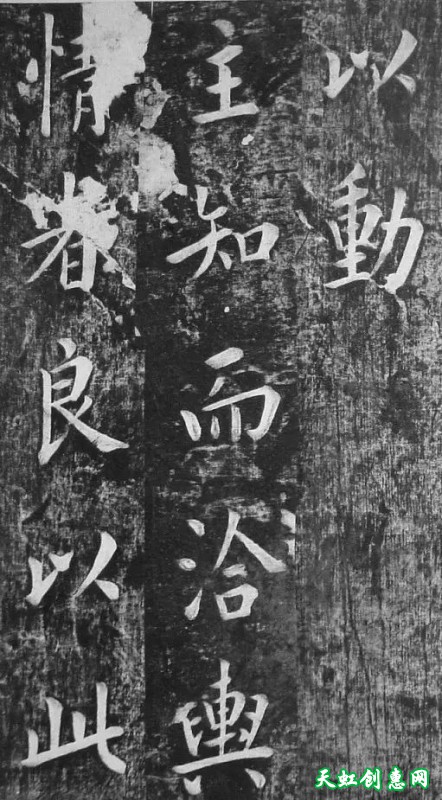 以動
主知而洽輿
情眷良以此
天虹创惠网